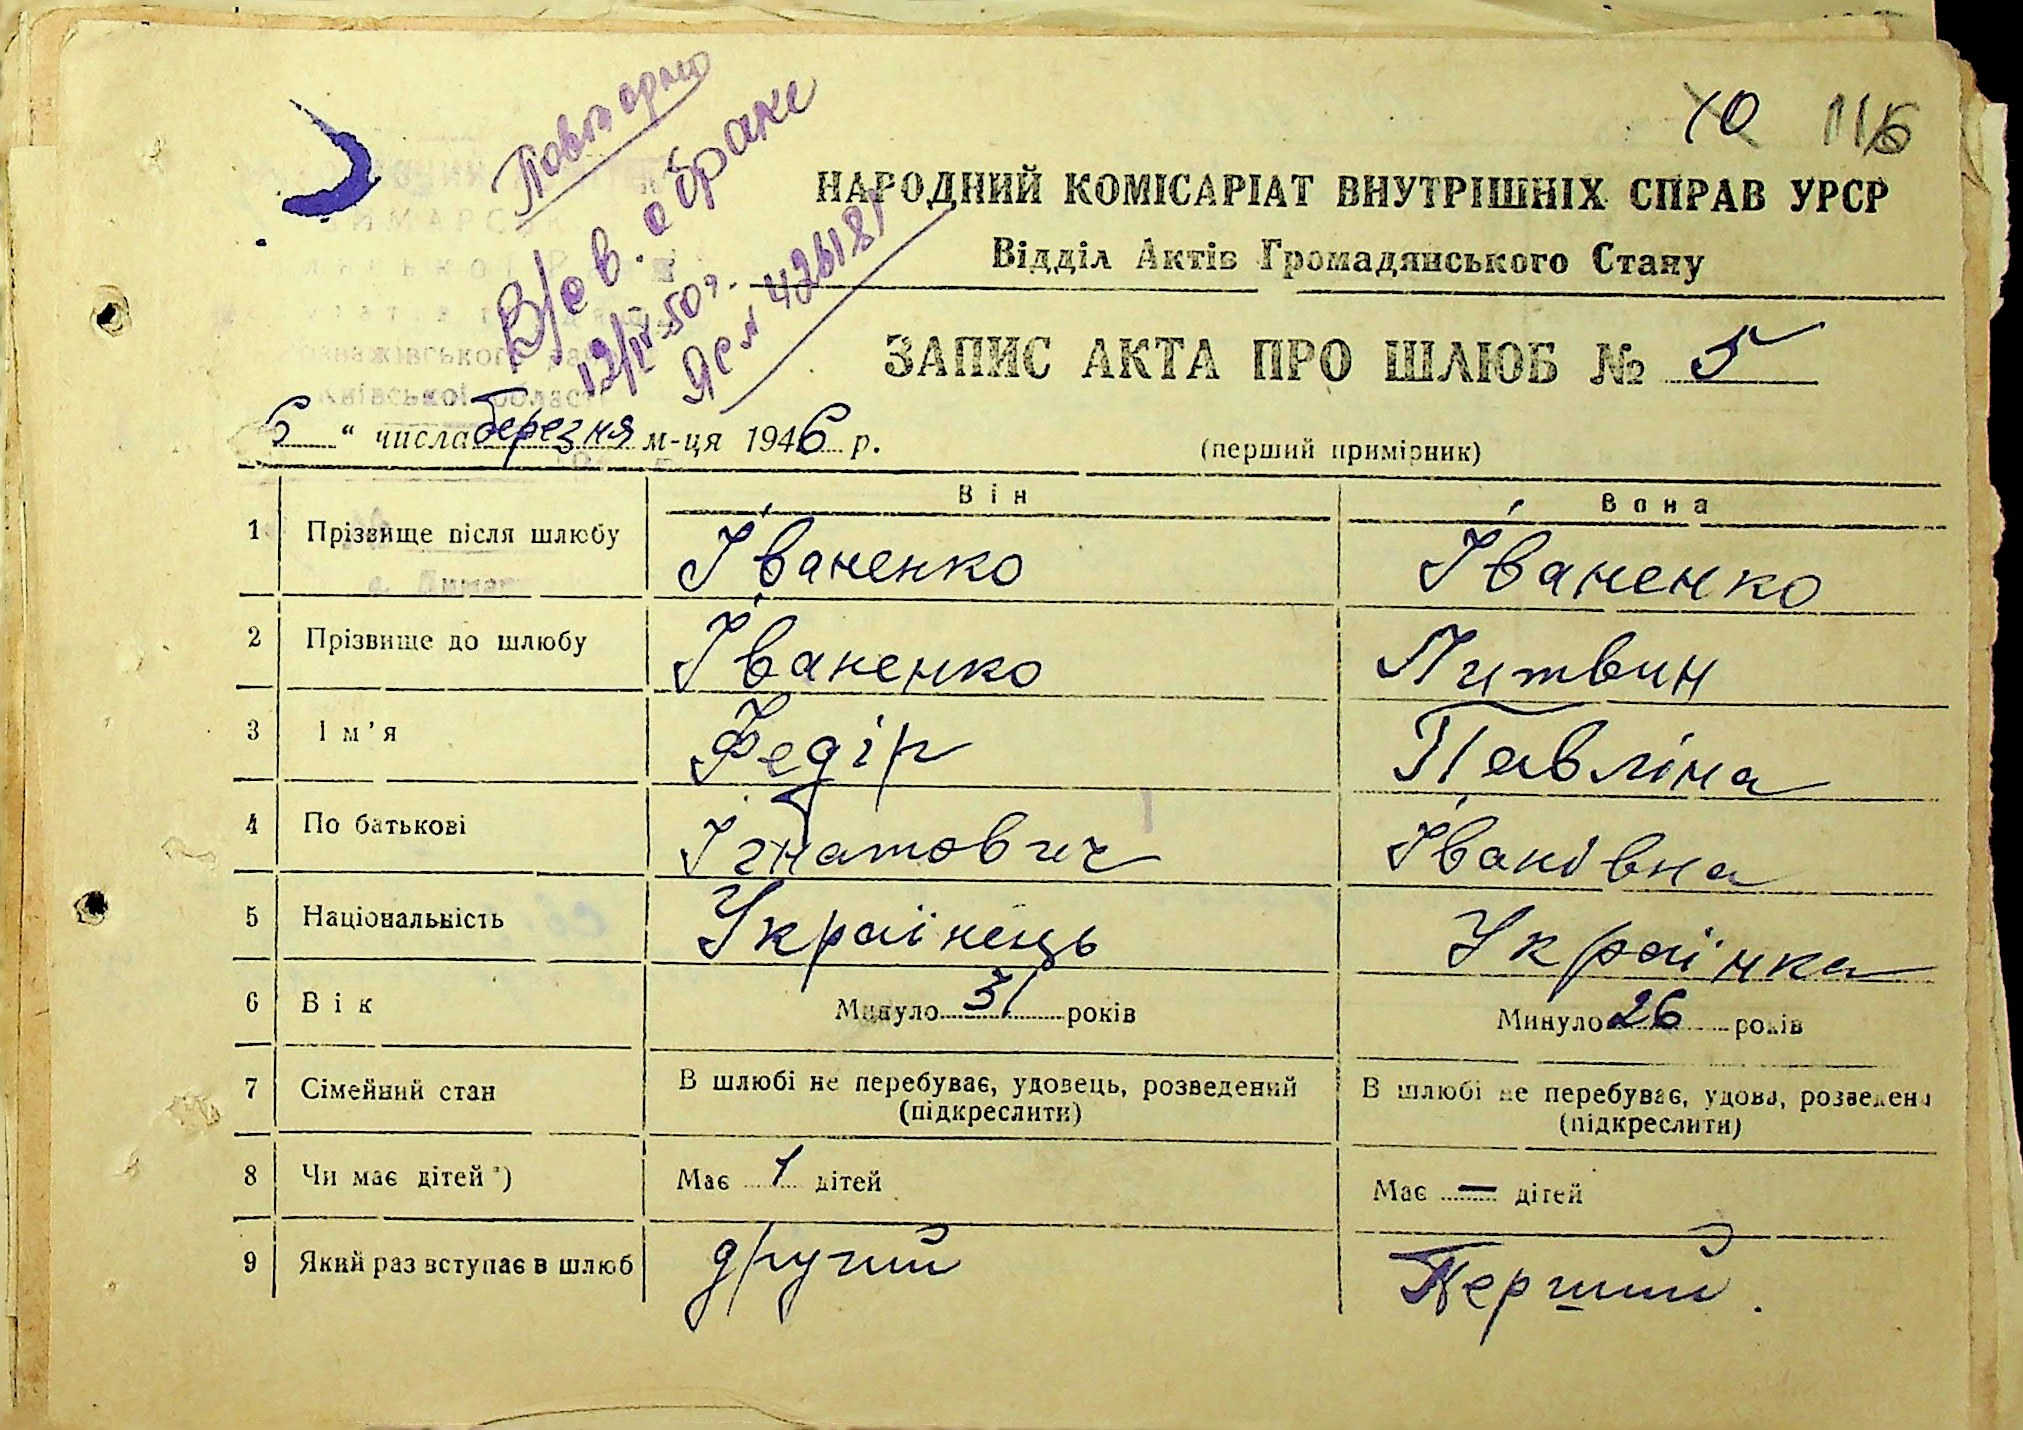 10 116
Повторно
В/св. о браке
19/IV-50 г.
ЯС № 426181
НАРОДНИЙ КОМІСАРІАТ ВНУТРІШНІХ СПРАВ УРСР
Відділ Актів Громадянського Стану
ЗАПИС АКТА ПРО ШЛЮБ № 5
6 " числа березня м-ця 1946 р. (перший примірник)
Він Вона
1 Прізвище після шлюбу Іваненко Іваненко
2 Прізвище до шлюбу Іваненко Литвин
3 Ім'я Федір Павліна
4 По батькові Ігнатович Іванівна
5 Національність Українець Українка
6 Вік Минуло 31 років Минуло 26 років
7 Сімейний стан В шлюбі не перебуває, удовець, розведений В шлюбі не перебуває, удова, розведена
(підкреслити) (підкреслити)
8 Чи має дітей *) Має 1 дітей Має — дітей
9 Який раз вступає в шлюб другий Перший.